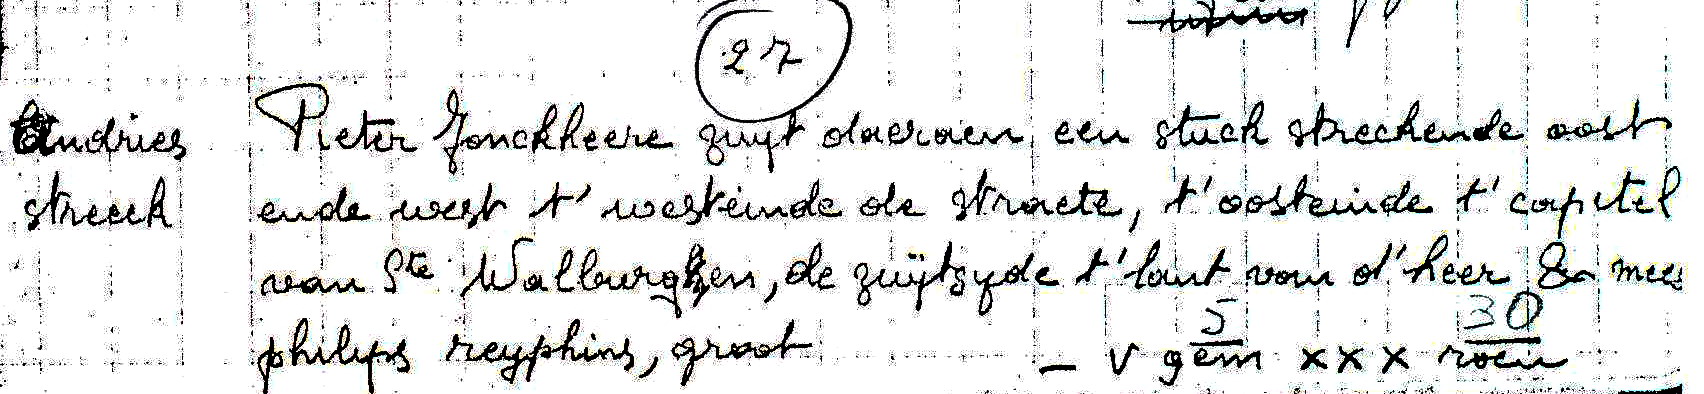 27
Andries Pieter Jonckheere zuyt daeraen een stuck streckende oost
streeck ende west t' westeinde de straete, t'oosteinde t' capitel
van Ste Walburghen, de zuÿtzyde t'lant van d'heer & mees
philips reyphins, groot
5 30
- v gem xxx roen